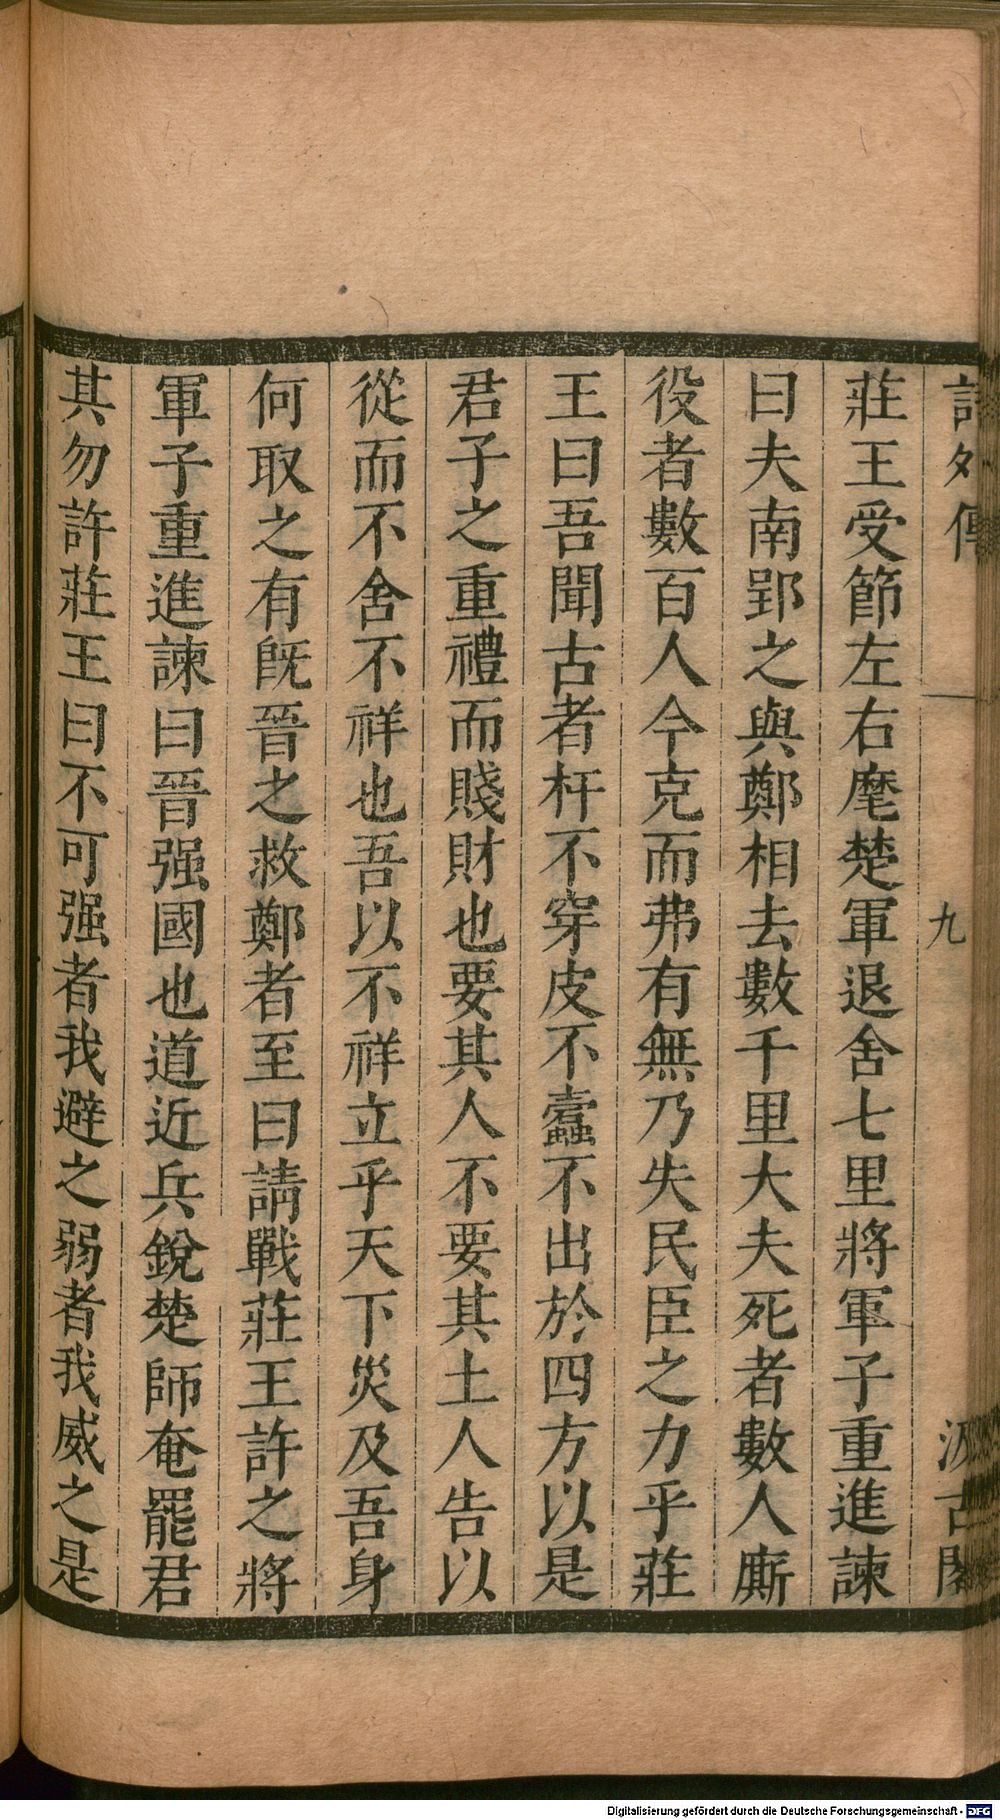 詩外傳 九 汲古閣
莊王受節左右麾楚軍退舍七里將軍子重進諫
曰夫南郢之與鄭相去數千里大夫死者數人廝
役者數百人今克而弗有無乃失民臣之力乎莊
王曰吾聞古者杅不穿皮不蠹不出於四方以是
君子之重禮而賤財也要其人不要其土人告以
從而不舍不祥也吾以不祥立乎天下災及吾身
何取之有既晉之救鄭者至曰請戰莊王許之將
軍子重進諫曰晉强國也道近兵銳楚師奄罷君
其勿許莊王曰不可强者我避之弱者我威之是
Digitalisierung gefördert durch die Deutsche Forschungsgemeinschaft - DFG